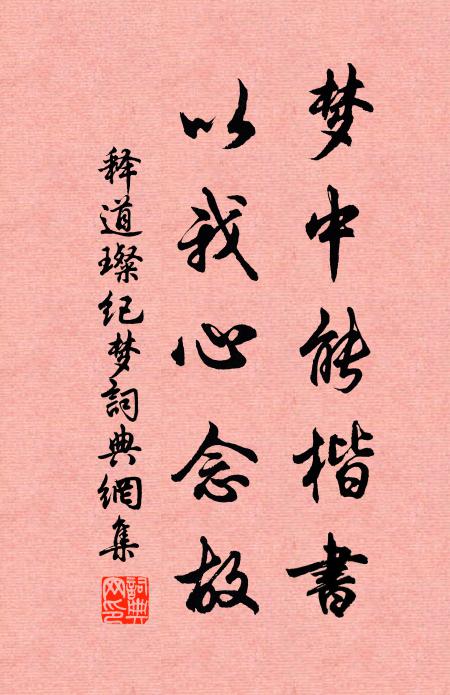 梦中能楷书
以我心念故
释道璨纪梦詞典網集
詞典网印